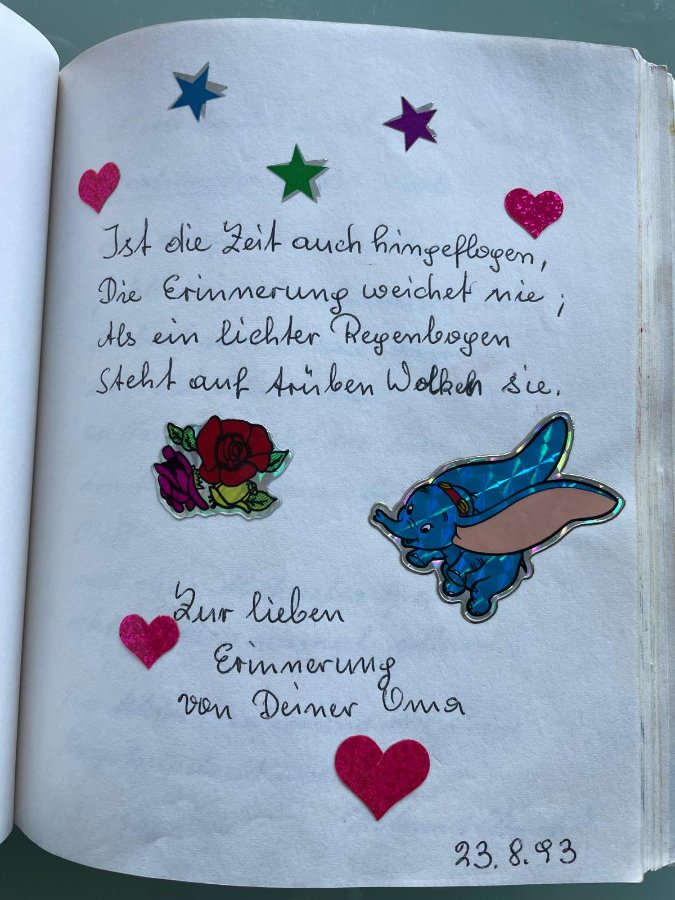 Ist die Zeit auch hingeflogen,
Die Erinnerung weichet nie;
Als ein lichter Regenbogen
Steht auf trüben Wolken sie.
Zur lieben
Erinnerung
von Deiner Oma
23.8.93